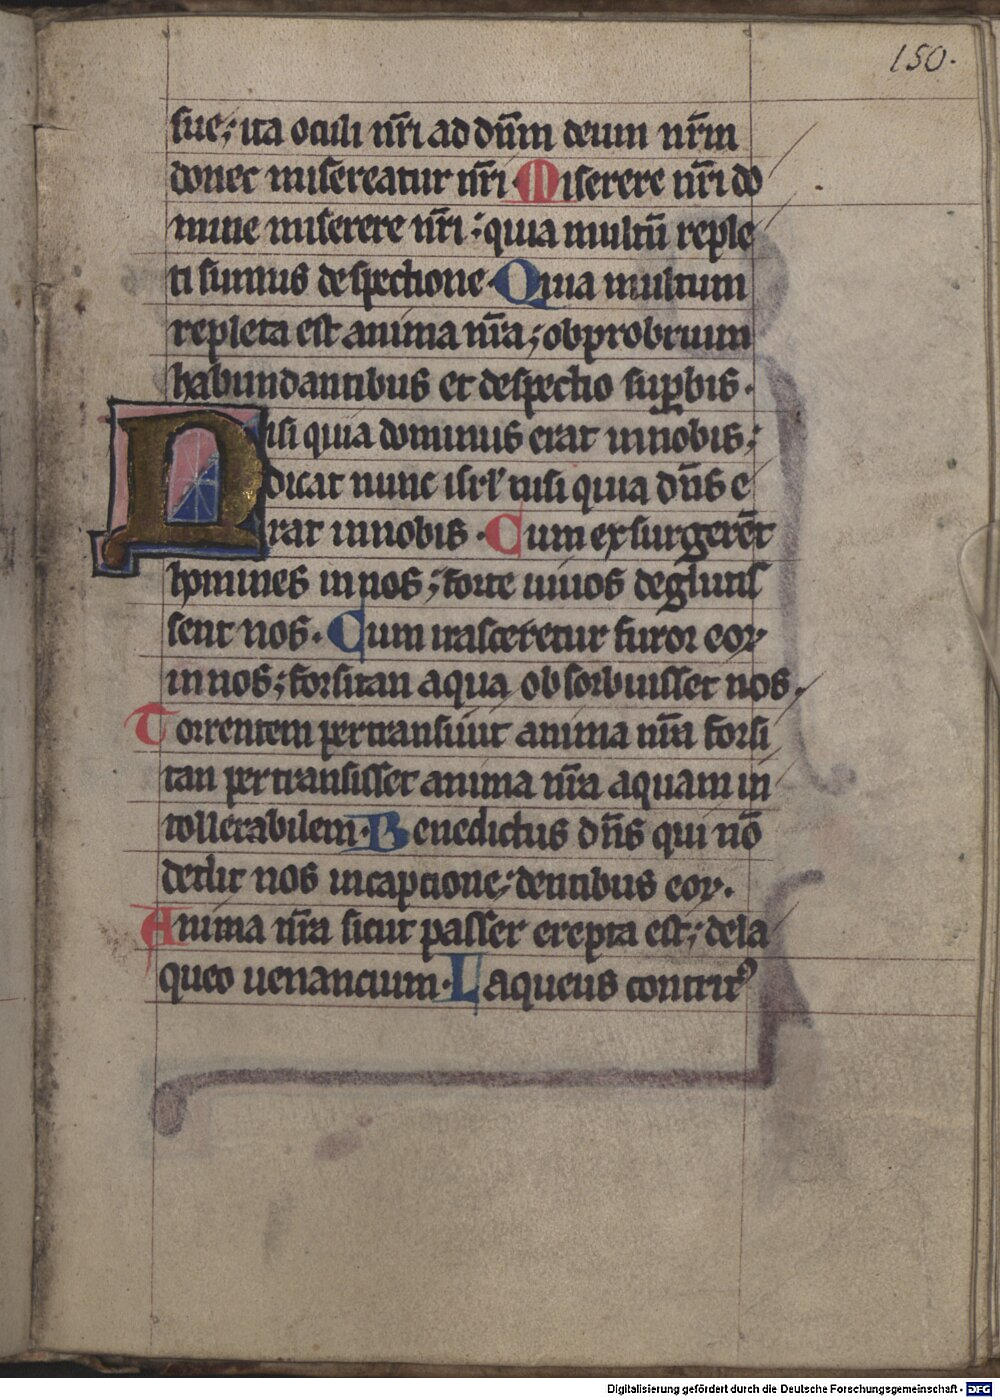 150.
sue; ita oculi nr̄i ad dn̄m deum nr̄m
donec misereatur nr̄i. Miserere nr̄i do
mine miserere nr̄i; quia multū reple
ti sumus despectione. Quia multum
repleta est anima nr̄a; obprobrium
habundantibus et despectio sup̱bis.
Nisi quia dominus erat innobis;
dicat nunc isrl' nisi quia dn̄s e
rat innobis. Cum exsurgerēt
homines in nos; forte uiuos deglutis
sent nos. Cum irasceretur furor eoꝝ
in nos; forsitan aqua obsorbuisset nos.
Torrentem pertransiuit anima nr̄a forsi
tan pertransisset anima nr̄a aquam in
tollerabilem. Benedictus dn̄s qui nō
dedit nos incaptione; dentibus eoꝝ.
Anima nr̄a sicut passer erepta est; dela
queo uenancium. Laqueus contritꝰ
Digitalisierung gefördert durch die Deutsche Forschungsgemeinschaft - DFG